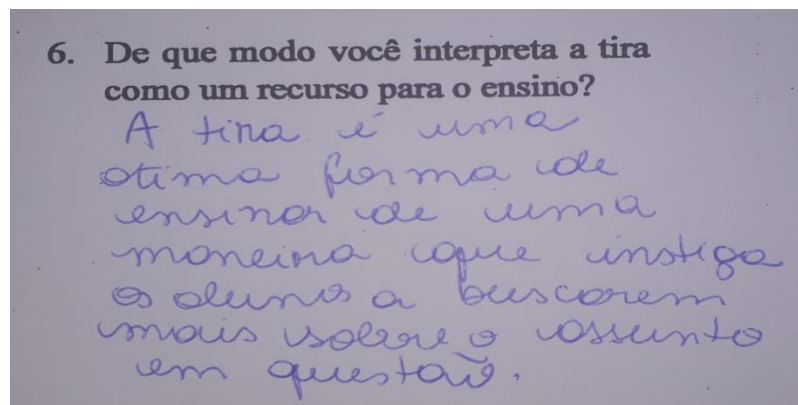 6. De que modo você interpreta a tira
como um recurso para o ensino?
A tira é uma
otima forma de
ensinar de uma
maneira que instiga
os alunos a buscarem
mais sobre o assunto
em questão.